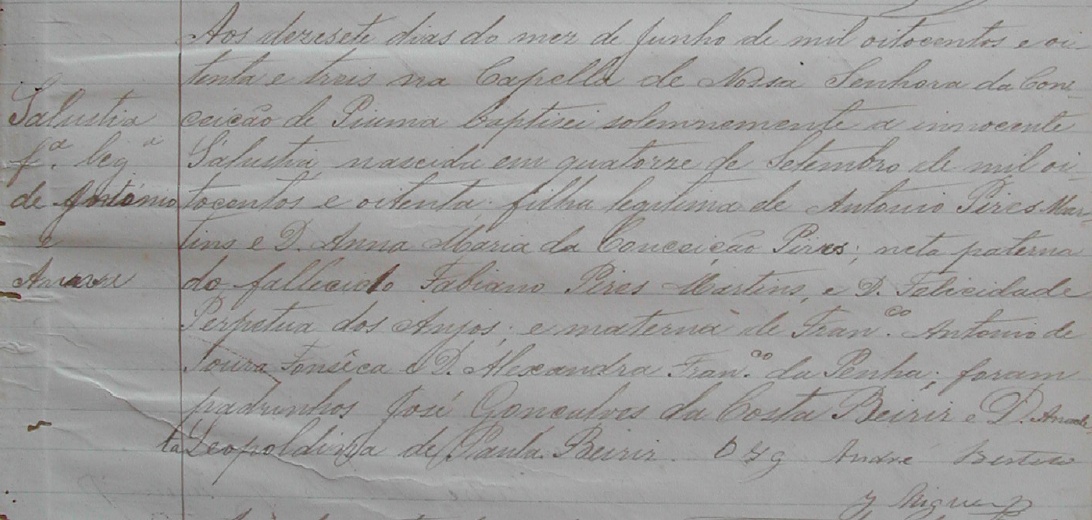 Aos dezesete dias do mez de Junho de mil oitocentos e oi-
tenta e treis na Capella de Nossa Senhora da Con-
Salustia
ceição de Piuma baptisei solemnemente a innocente
fª. legª
Salustia, nascida em quatorze de Setembro de mil oi-
de Antonio
tocentos e oitenta filha legitima de Antonio Pires Mar-
e
tins e D. Anna Maria da Conceição Pires; neta paterna
do fallecido Fabiano Pires Martins, e D. Felicidade
Perpetua dos Anjos; e materna de Fran.co Antonio de
Souza Fonsêca e D. Alexandra Fran.ca da Penha; foram
padrinhos José Gonçalves da Costa Beirir e D.
Leopoldina de Paula Beirir. O André